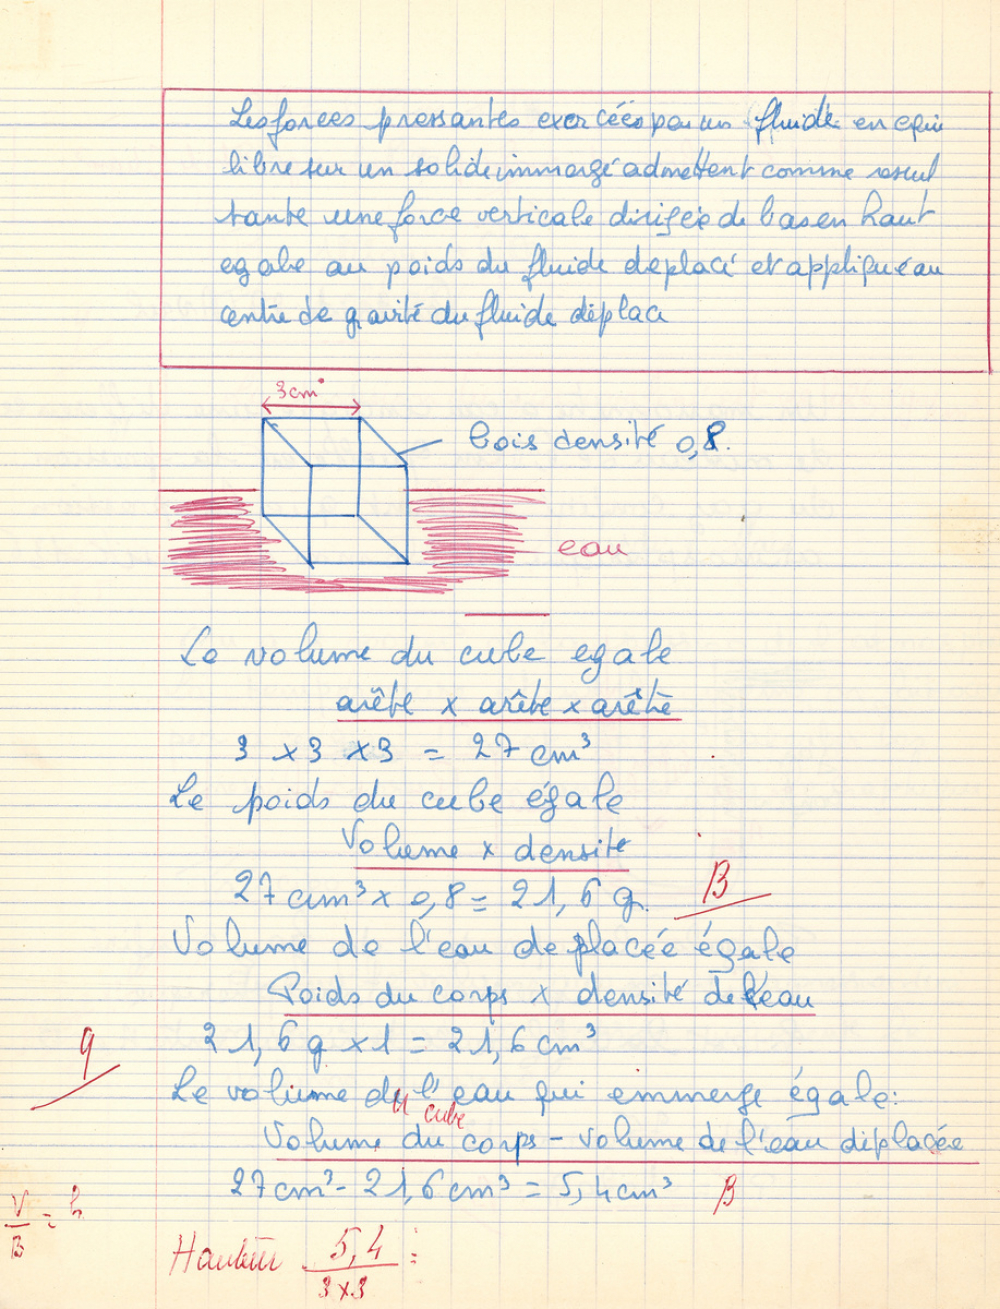 Les forces pressantes exercées par un fluide en équi
libre sur un solide immergé admettent comme resul
tante une force verticale dirigée de bas en haut
egale au poids du fluide deplacé et appliqué au
centre de gravité du fluide déplacé
3cm
bois densité 0,8.
eau
Le volume du cube egale
arête x arête x arête
3 x 3 x 3 = 27 cm³
Le poids du cube égale
Volume x densité
27 cm³ x 0,8 = 21,6 g.
B
Volume de l'eau deplacée égale
Poids du corps x densité de l'eau
21,6 g x 1 = 21,6 cm³
9
Le volume du l'eau qui emmerge égale:
cube
Volume du corps - volume de l'eau déplacée
27cm³ - 21,6cm³ = 5,4cm³
B
V/B = h
Hauteur 5,4 / 3x3 =